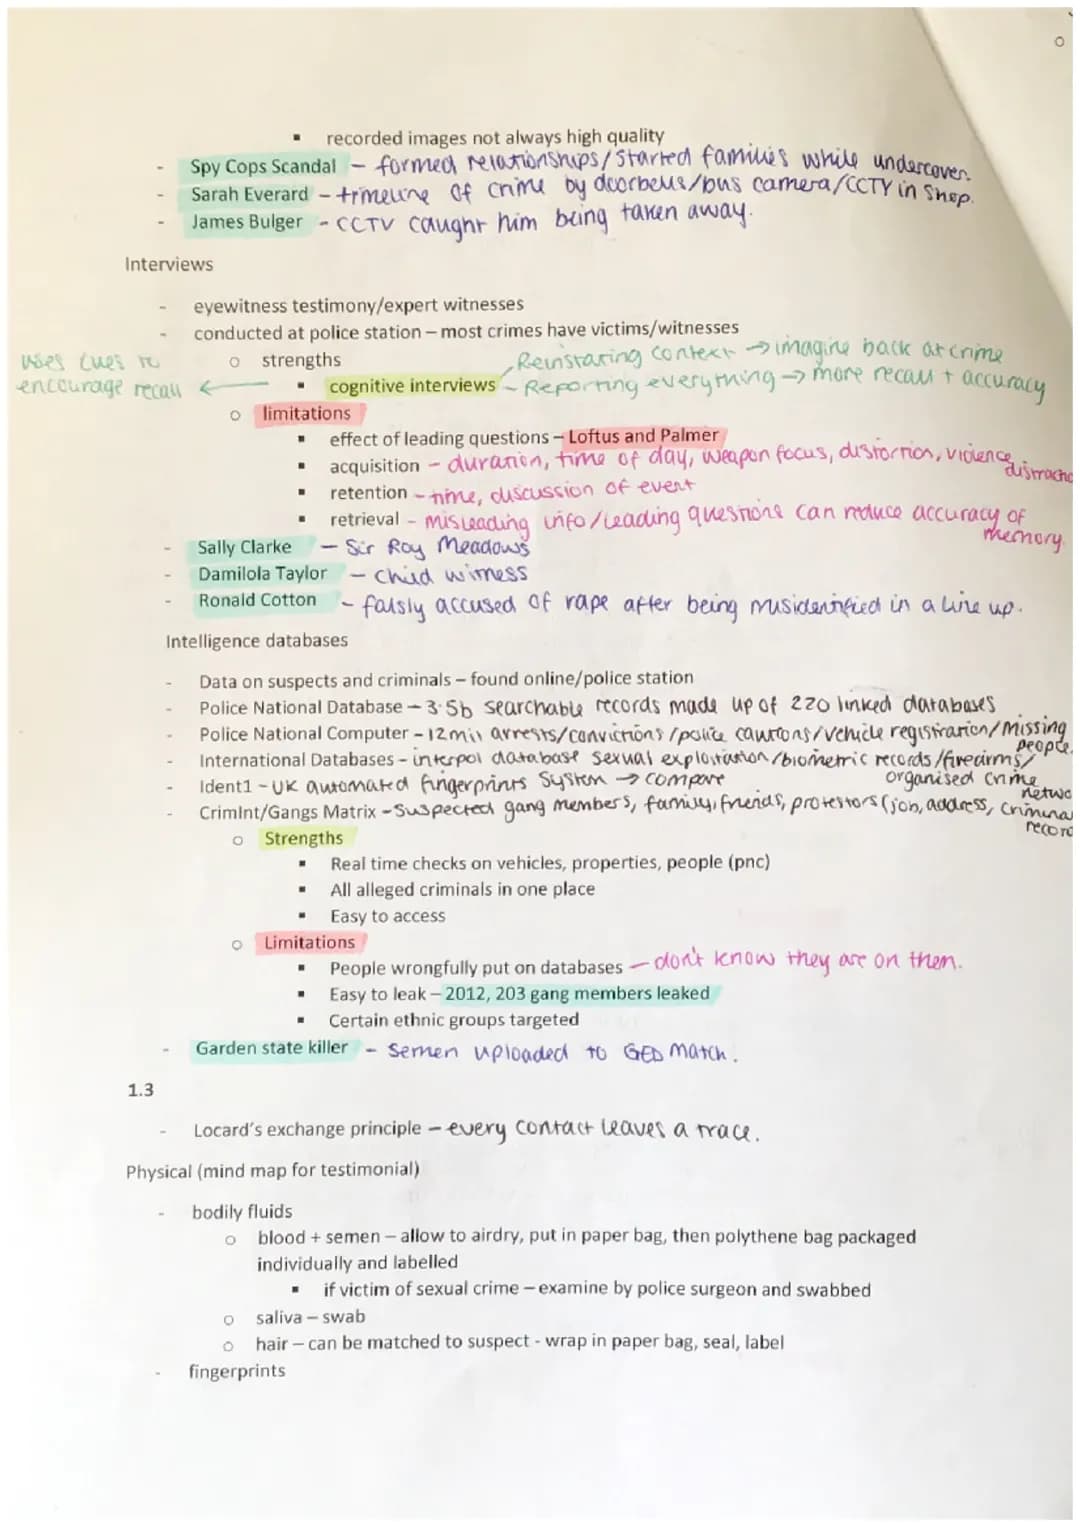 ▪ recorded images not always high quality
- Spy Cops Scandal – formed relationships/started families while undercover.
- Sarah Everard – timeline of crime by doorbells/bus camera/CCTV in shop.
- James Bulger - CCTV caught him being taken away.
Interviews
- eyewitness testimony/expert witnesses
- conducted at police station – most crimes have victims/witnesses
uses cues to
encourage recall ←
o strengths
Reinstating context → imagine back at crime
▪ cognitive interviews – Reporting everything → more recall + accuracy
o limitations
▪ effect of leading questions – Loftus and Palmer
▪ acquisition – duration, time of day, weapon focus, distortion, violence
▪ retention – time, discussion of event
▪ retrieval – misleading info/leading questions can reduce accuracy of
memory.
- Sally Clarke – Sir Roy Meadows
- Damilola Taylor – child witness
- Ronald Cotton - falsly accused of rape after being misidentified in a line up.
Intelligence databases
- Data on suspects and criminals – found online/police station
- Police National Database – 3.5b searchable records made up of 220 linked databases
- Police National Computer – 12mil arrests/convictions/police cautions/vehicle registration/missing
people.
- International Databases – interpol database sexual exploitation/biometric records/firearms/
organised crime
- Ident1 – UK automated fingerprints system → compare
- CrimInt/Gangs Matrix – Suspected gang members, family, friends, protestors (job, address,
o Strengths
▪ Real time checks on vehicles, properties, people (pnc)
▪ All alleged criminals in one place
▪ Easy to access
o Limitations
▪ People wrongfully put on databases – don't know they are on them.
▪ Easy to leak – 2012, 203 gang members leaked
▪ Certain ethnic groups targeted
- Garden state killer - Semen uploaded to GED match.
1.3
- Locard's exchange principle – every contact leaves a trace.
Physical (mind map for testimonial)
- bodily fluids
o blood + semen – allow to airdry, put in paper bag, then polythene bag packaged
individually and labelled
▪ if victim of sexual crime – examine by police surgeon and swabbed
o saliva – swab
o hair – can be matched to suspect - wrap in paper bag, seal, label
- fingerprints